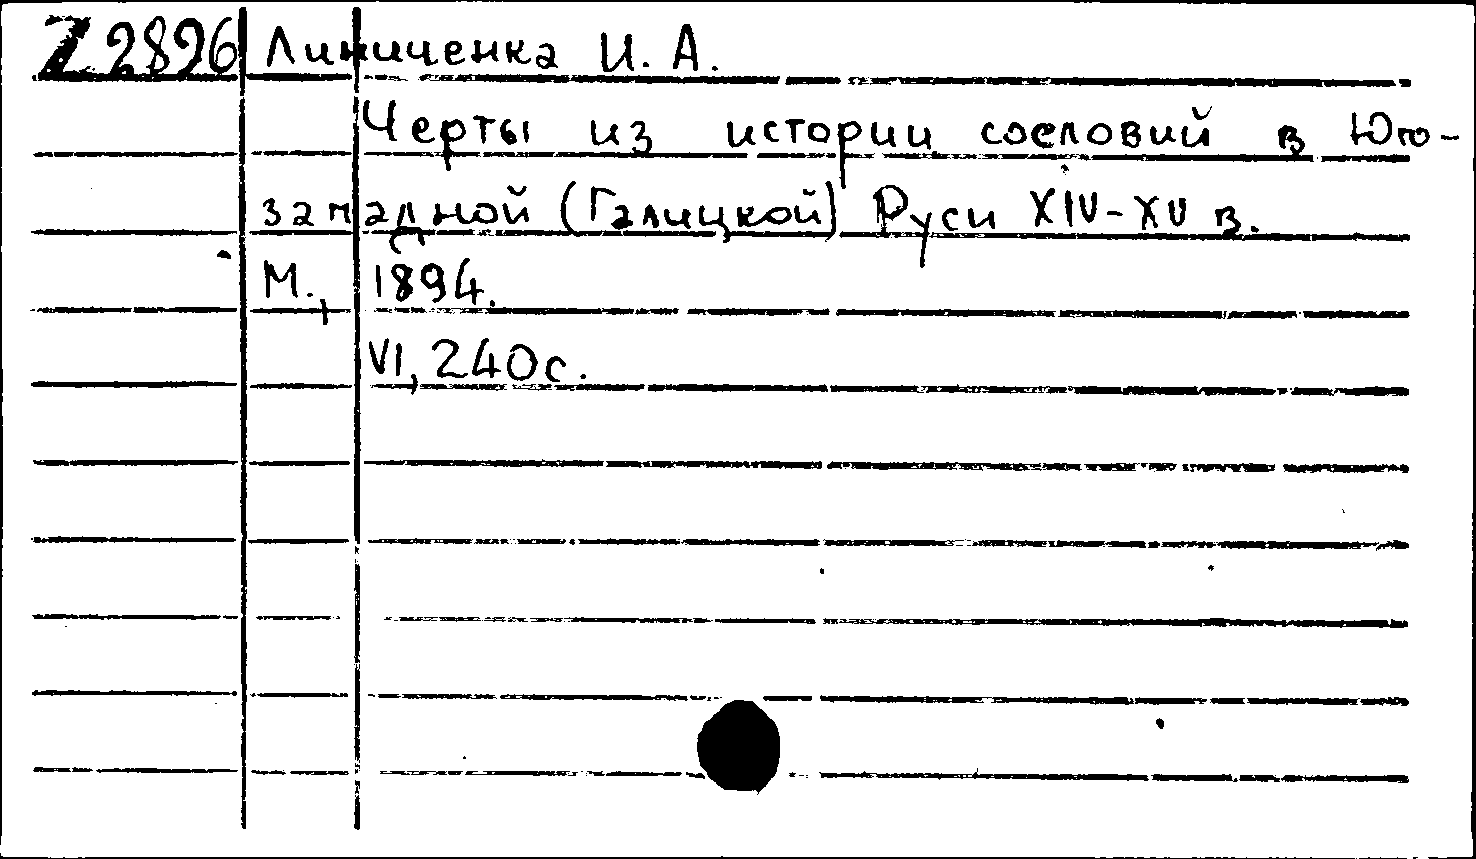 Z 2896 Линиченка И. А.
Черты из истории сословий в Юго-
западной (Галицкой) Руси XIV-XV в.
М., 1894.
VI, 240 с.